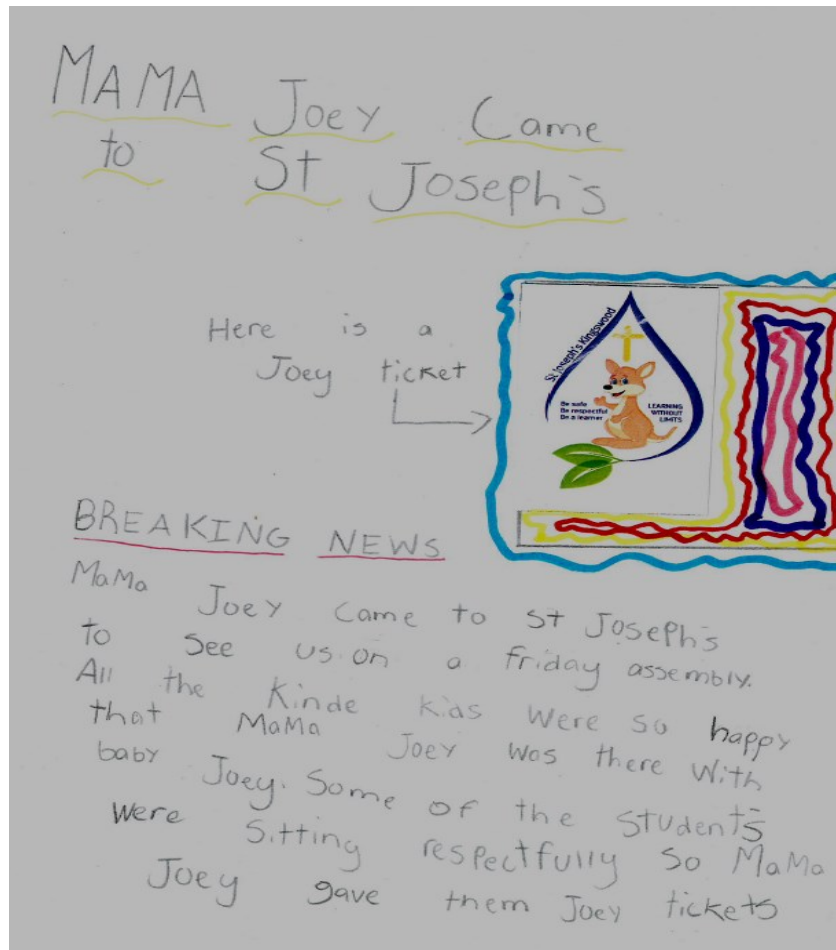 MAMA Joey Came
to St Joseph's
Here is a
Joey ticket
St Joseph's Kingswood
Be safe
Be respectful
Be a learner
LEARNING
WITHOUT
LIMITS
BREAKING NEWS
MaMa Joey came to St Joseph's
to see us on a friday assembly.
All the Kinde kids were so happy
that MaMa Joey was there with
baby Joey. Some of the students
were sitting respectfully so MaMa
Joey gave them Joey tickets